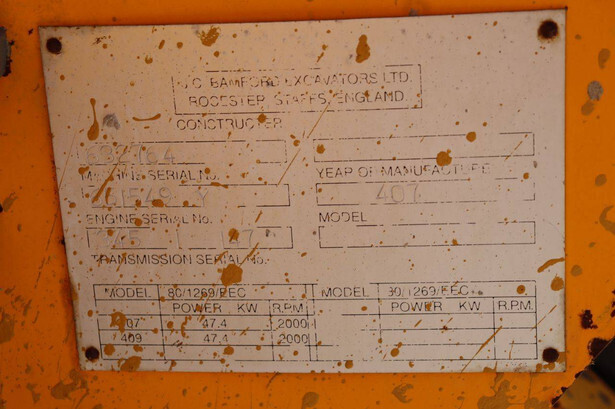 J C BAMFORD EXCAVATORS LTD.
ROCESTER, STAFFS, ENGLAMD.
CONSTRUCTER
MACHINE SERIAL No.
YEAR OF MANUFACTURE
407
ENGINE SERIAL No.
MODEL
TRANSMISSION SERIAL No.
MODEL 80/1269/EEC MODEL 80/1269/EEC
POWER KW R.P.M. POWER KW R.P.M.
407 47.4 2000
409 47.4 2000